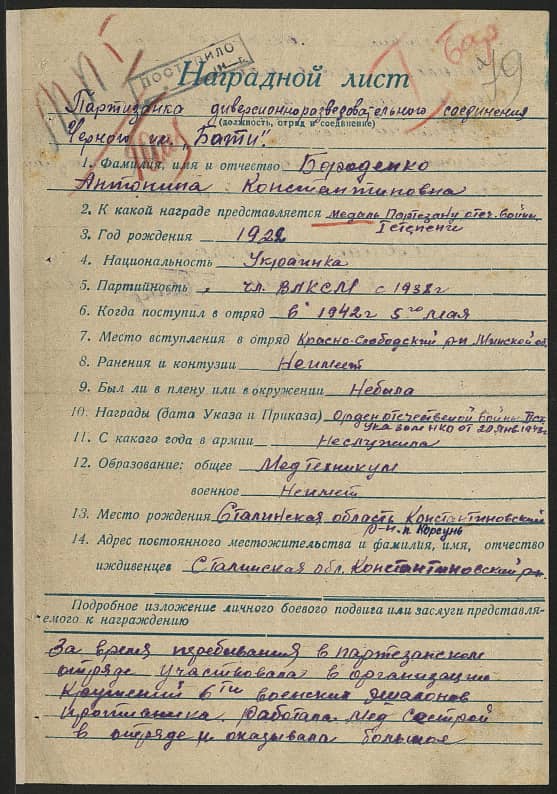 ПОСТУПИЛО
79
Наградной лист
Партизанка диверсионноразведовательного соединения
(должность, отряд и соединение)
Черного им „Бати".
1. Фамилия, имя и отчество Бороденко
Антонина Константиновна
2. К какой награде представляется медаль Партезану отеч. войны
I степени
3. Год рождения 1922
4. Национальность Украинка
5. Партийность чл. ВЛКСМ с 1938г
6. Когда поступил в отряд в 1942г 5го мая
7. Место вступления в отряд Красно-Слободский р-н Минской об.
8. Ранения и контузии Неимет
9. Был ли в плену или в окружении Небыла
10. Награды (дата Указа и Приказа) Орден отечествеой войны IIст
указом НКО от 20 янв 1943г
11. С какого года в армии Неслужила
12. Образование: общее Медтехникум
военное Неимет
13. Место рождения Сталинская область Константиновский
р-н. п. Корсунь
14. Адрес постоянного местожительства и фамилия, имя, отчество
иждивенцев Сталинская обл. Константиновский рн.
Подробное изложение личного боевого подвига или заслуги представля-
емого к награждению
За время перебывания в партезанском
отряде участвовала в организации
крушений 6ти военских эшалонов
протианика. Работала мед сестрой
в отряде и оказывала большое